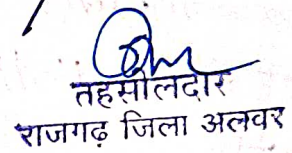 तहसीलदार
राजगढ़ जिला अलवर